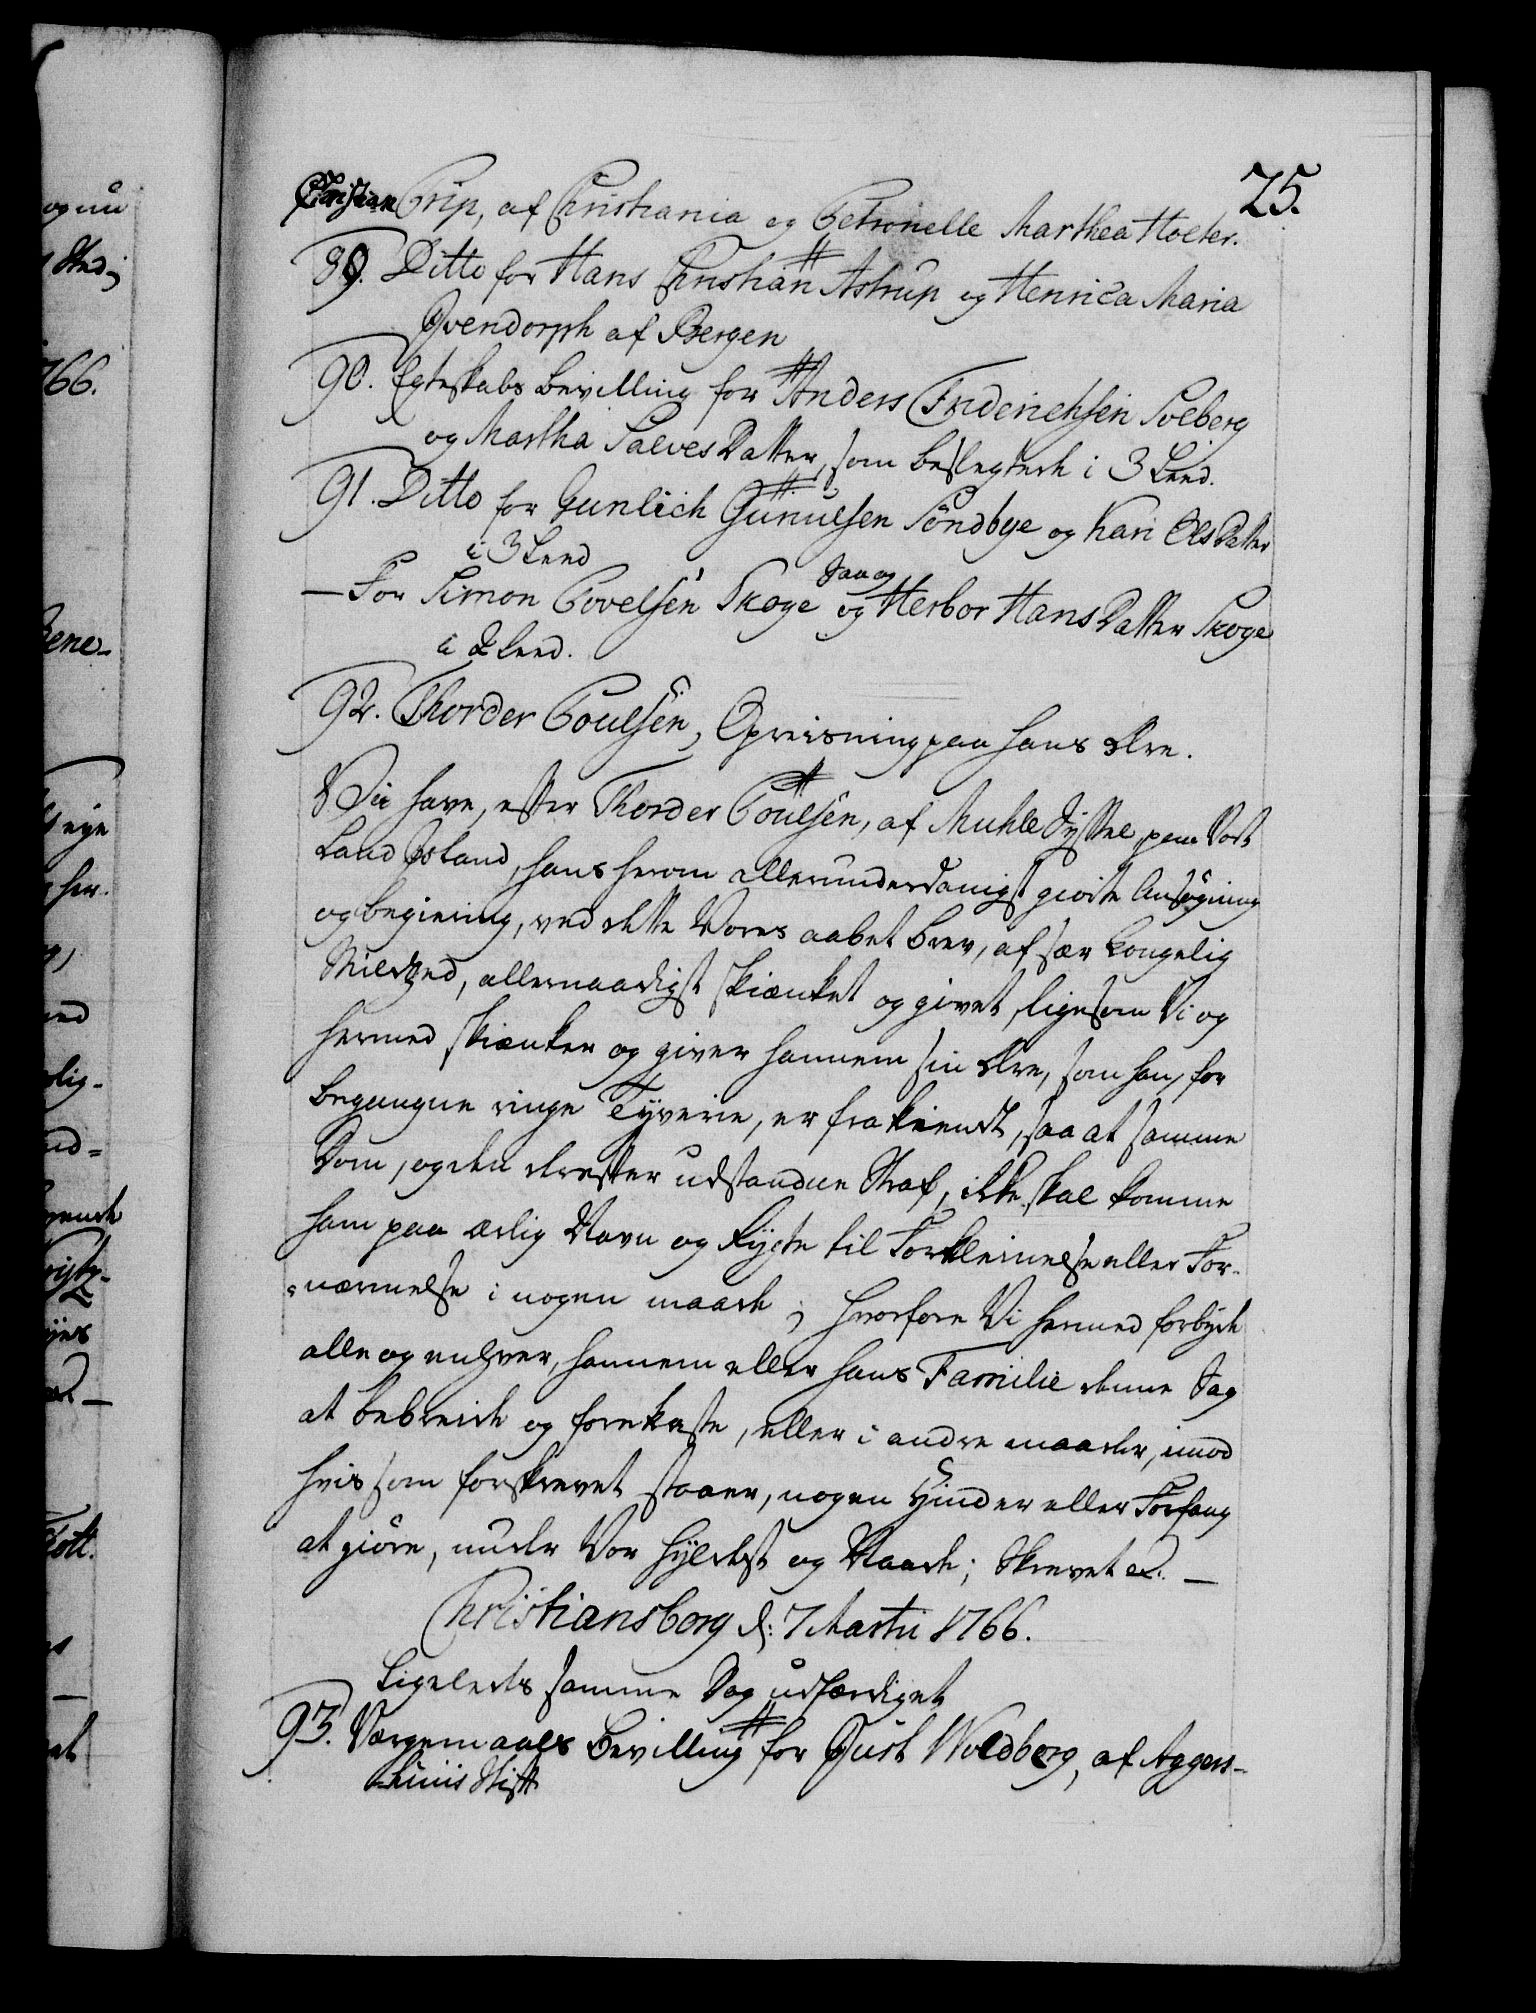 25.
Christian Prip, af Christiania og Petronelle Marthea Holter.
89. Ditto for Hans Christian Astrup og Henrica Maria
Qvendorph af Bergen
90. Egteskabs Bevilling for Anders Friderichsen Solberg
og Martha Salves Datter, som beslegtede i 3 Leed.
91. Ditto for Gunlich Gunulsen Söndbye og Kari Ols Datter
i 3 Leed
Saa og
— For Simon Povelsen Skoge og Herbor Hans Datter Skoge
i 2 Leed.
92. Thorder Poulsen, Opreisning paa hans Ære.
Vii have, efter Thorder Poulsen, af Muhle Syssel paa Vort
Land Island, hans herom allerunderdanigst giorte Ansøgning
og begiering, ved dette Vores aabet Brev, af sær Kongelig
Mildhed, allernaadigst skiænket og givet, ligesom Vi og
hermed skiænker og giver hannem sin Ære, som han, for
begangne ringe Tyverie, er frakiendt, saa at samme
Dom, og den derefter udstandne Straf, ikke skal komme
ham paa ærlig Navn og Rygte til Forkleinelse eller For-
nærmelse i nogen maade; hvorfore Vi hermed forbyde
alle og enhver, hannem eller hans Familie denne Sag
at bebreide og forekaste, eller i andre maader, imod
hvis som forskrevet staaer, nogen Hinder eller Forfang
at giöre, under Vor Hyldest og Naade; Skrevet &c. —
Christiansborg d: 7 Martii 1766.
Ligeledes samme Dag udfærdiget
93. Værgemaals Bevilling for Just Woldberg, af Agger-
huus Stift
og nu
766.
Bene-